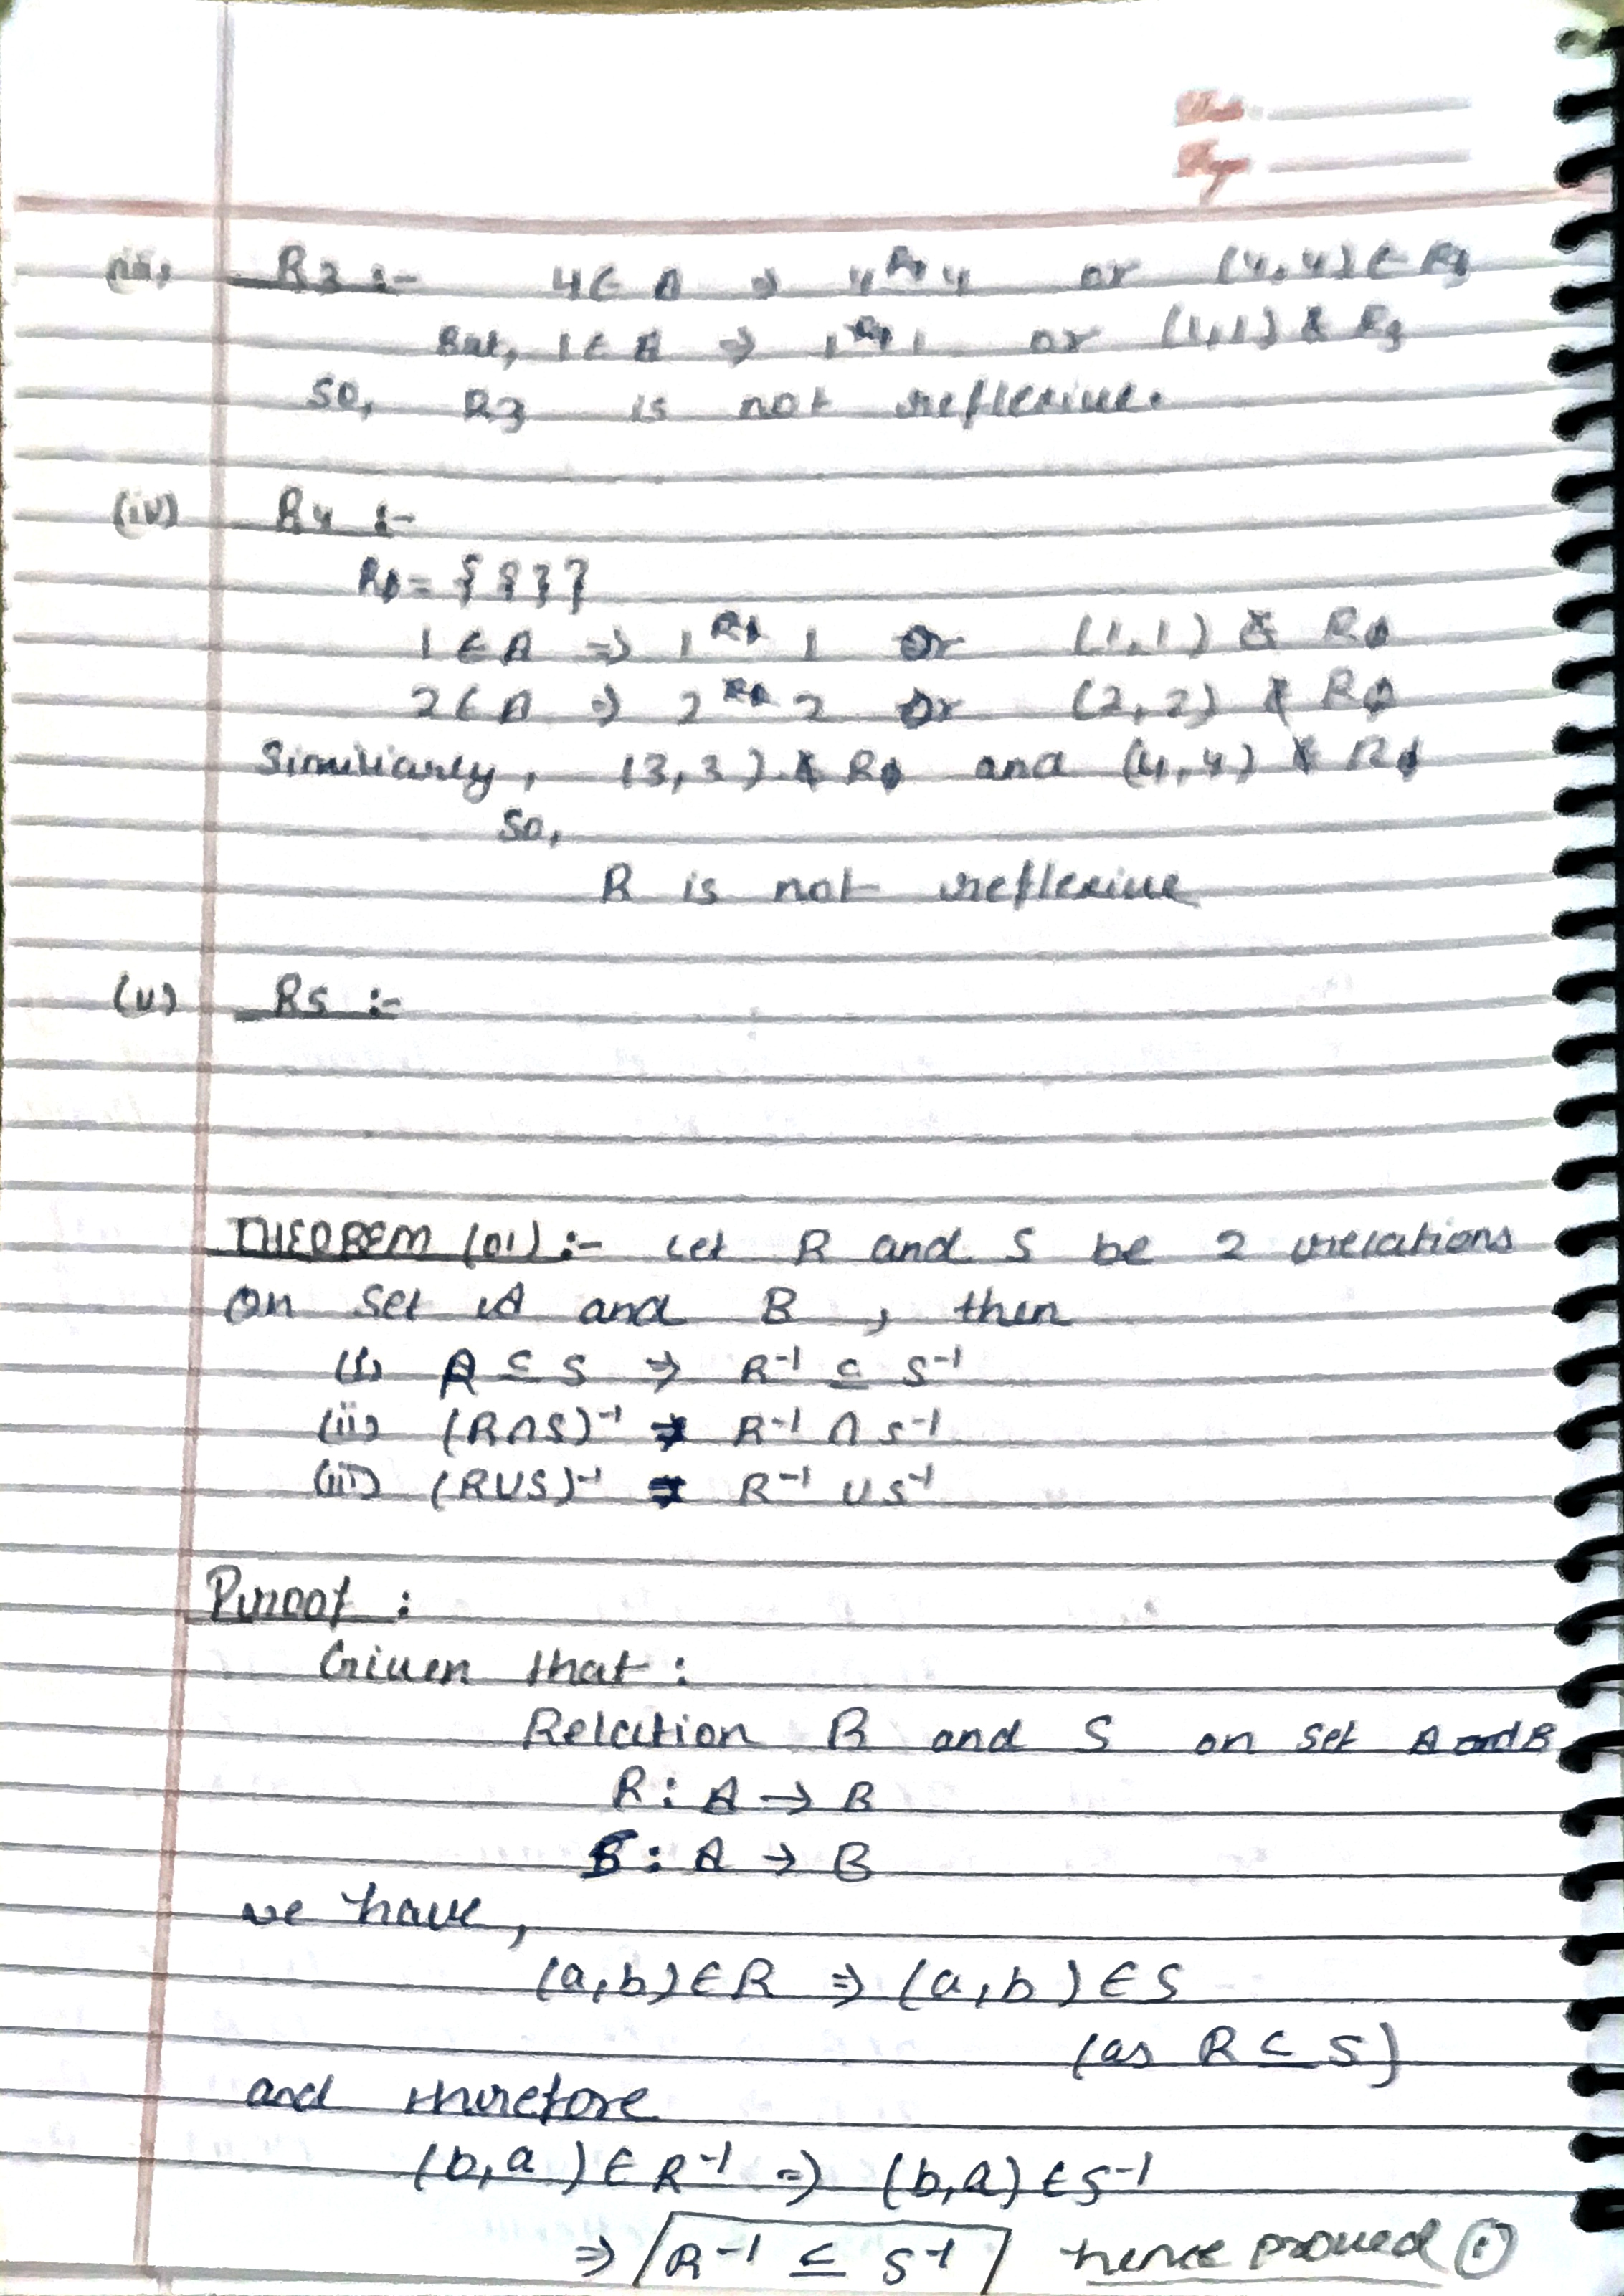 Date
Page
(iii) R3 :- 4 ∈ A ⇒ 4 R3 4 or (4,4) ∈ R3
But, 1 ∈ A ⇒ 1 R3 1 or (1,1) ∉ R3
So, R3 is not reflexive.
(iv) R4 :-
Rϕ = { { } }
1 ∈ A ⇒ 1 Rϕ 1 or (1,1) ∉ Rϕ
2 ∈ A ⇒ 2 Rϕ 2 or (2,2) ∉ Rϕ
Similiarly, (3,3) ∉ Rϕ and (4,4) ∉ Rϕ
So,
R is not reflexive
(v) R5 :-
THEOREM (01) :- Let R and S be 2 relations
on set A and B, then
(i) R ⊆ S ⇒ R⁻¹ ⊆ S⁻¹
(ii) (R∩S)⁻¹ = R⁻¹ ∩ S⁻¹
(iii) (R∪S)⁻¹ = R⁻¹ ∪ S⁻¹
Proof :
Given that :
Relation R and S on set A and B
R : A → B
S : A → B
we have,
(a,b) ∈ R ⇒ (a,b) ∈ S
(as R ⊆ S)
and therefore
(b,a) ∈ R⁻¹ ⇒ (b,a) ∈ S⁻¹
⇒ R⁻¹ ⊆ S⁻¹ hence proved (i)